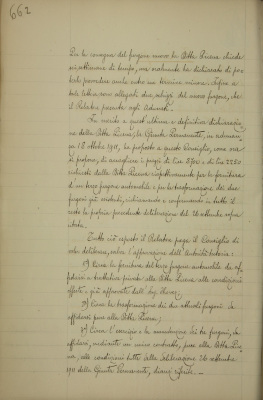 662
Per la consegna del furgone nuovo la Ditta Picena chiede
sei settimane di tempo, ma verbalmente ha dichiarato di po-
terli provvedere anche entro un termine minore. Infine a
tale lettera sono allegati due schizzi del nuovo furgone, che
il Relatore presenta agli adunati.
In merito a quest'ultima e definitiva dichiarazio-
ne della Ditta Picena, la Giunta Permanente, in adunan-
za 18 ottobre 1911, ha proposto a questo Consiglio, come ora
si propone, di accogliere i prezzi di Lire 5700 e di Lire 2250
richiesti dalla Ditta Picena rispettivamente per la fornitura
d'un terzo furgone automobile e per la trasformazione dei due
furgoni già esistenti, richiamando e confermando in tutto il
resto la propria precedente deliberazione del 26 settembre sopra
citata.
Tutto ciò esposto il Relatore prega il Consiglio di
voler deliberare, salvo l'approvazione dell'Autorità tutoria:
1°) Circa la fornitura del terzo furgone automobile da af-
fidarsi a trattativa privata alla Ditta Picena alle condizioni
offerte e già approvate dall'Ing.
2°) Circa la trasformazione dei due attuali furgoni da
affidarsi pure alla Ditta Picena;
3°) Circa l'esercizio e la manutenzione dei tre furgoni, da
affidarsi, mediante un unico contratto, pure alla Ditta Pice-
na, alle condizioni tutte della deliberazione 26 settembre
1911 della Giunta Permanente, dianzi riferite. —